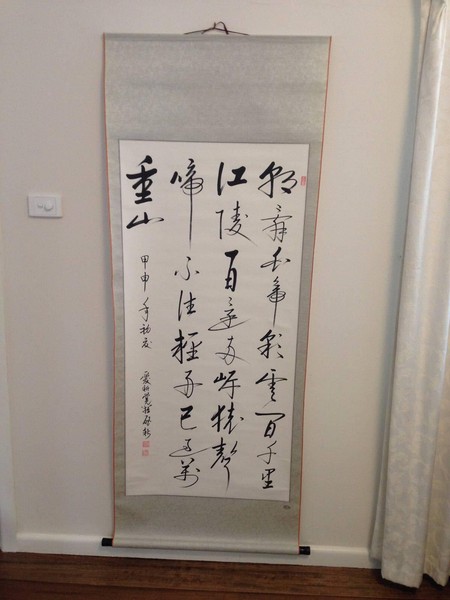 朝辭白帝彩雲間千里
江陵一日還兩岸猿聲
啼不住輕舟已過萬
重山
甲申年初夏 愛新覺羅